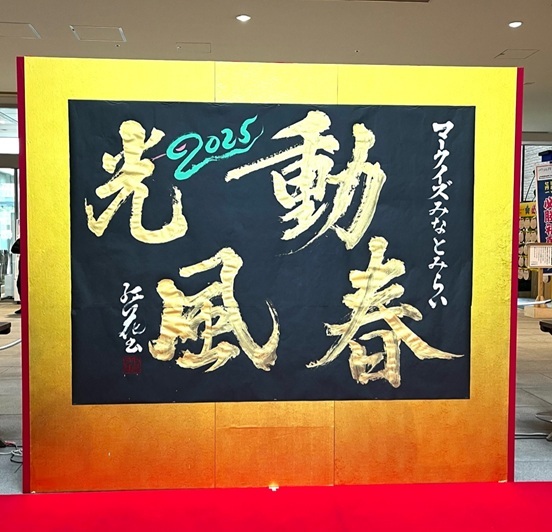 マークイズみなとみらい
動春
2025
光風
紅花